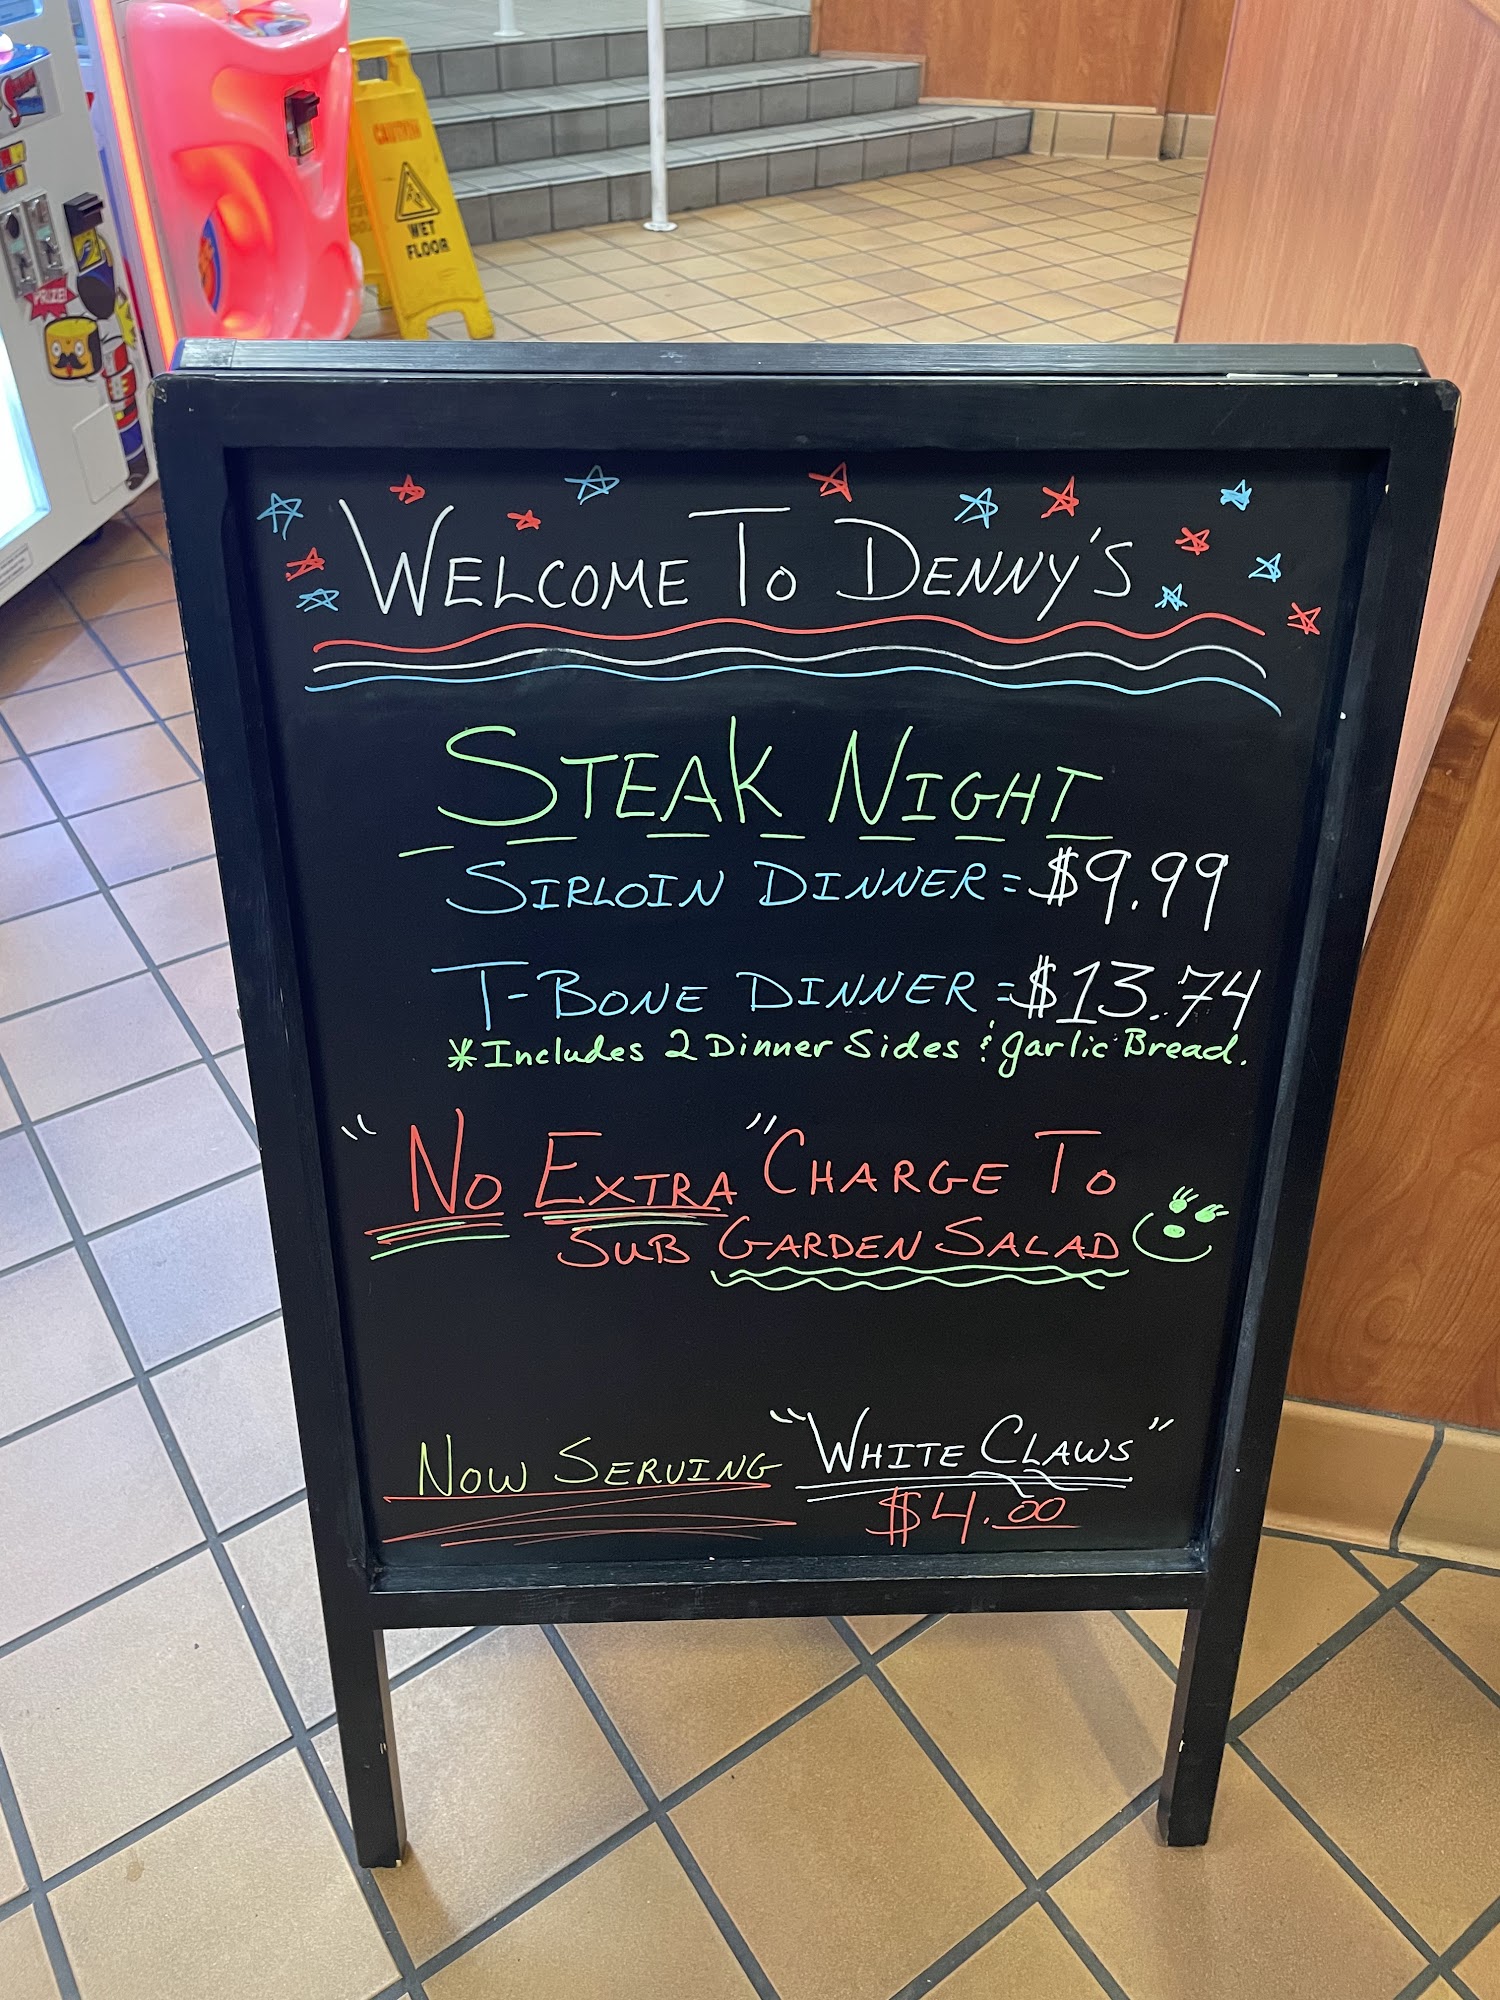 CAUTION
WET
FLOOR
PRIZE!
WELCOME TO DENNY'S
STEAK NIGHT
SIRLOIN DINNER = $9.99
T-BONE DINNER = $13.74
*Includes 2 Dinner Sides & garlic Bread.
"NO EXTRA" CHARGE TO
SUB GARDEN SALAD
NOW SERVING "WHITE CLAWS"
$4.00